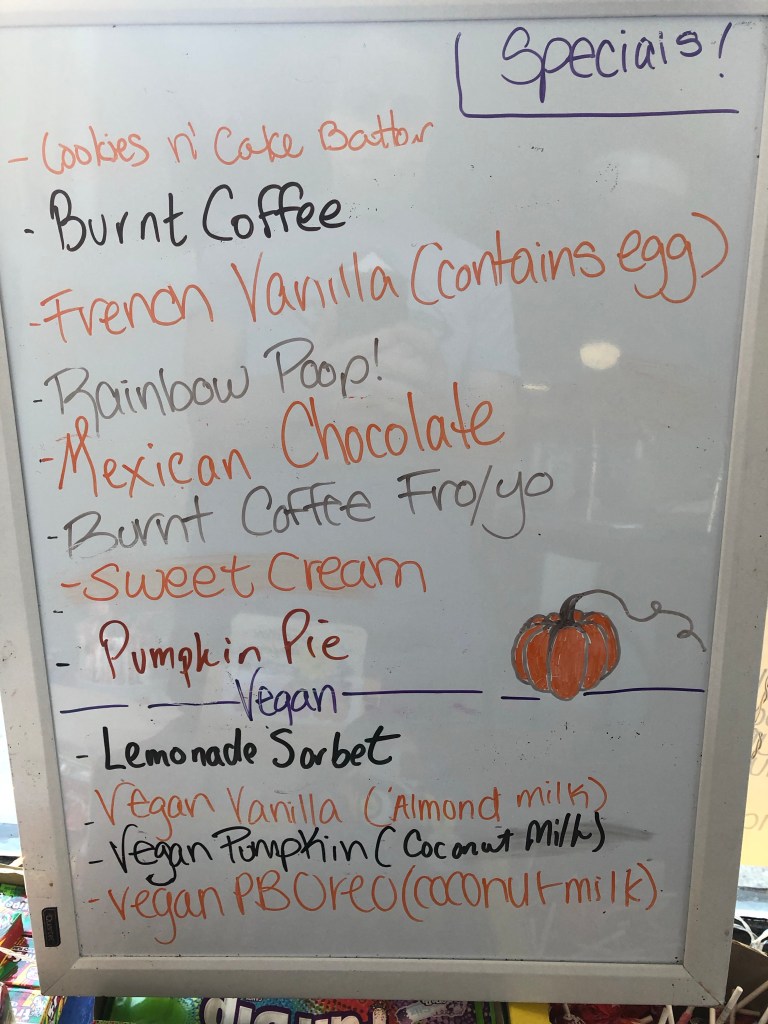 Specials!
- Cookies n' Cake Batter
- Burnt Coffee
- French Vanilla (contains egg)
- Rainbow Poop!
- Mexican Chocolate
- Burnt Coffee Fro/yo
- Sweet Cream
- Pumpkin Pie
Vegan
- Lemonade Sorbet
- Vegan Vanilla (Almond milk)
- Vegan Pumpkin (Coconut Milk)
- Vegan PB Oreo (coconut milk)
Quartet